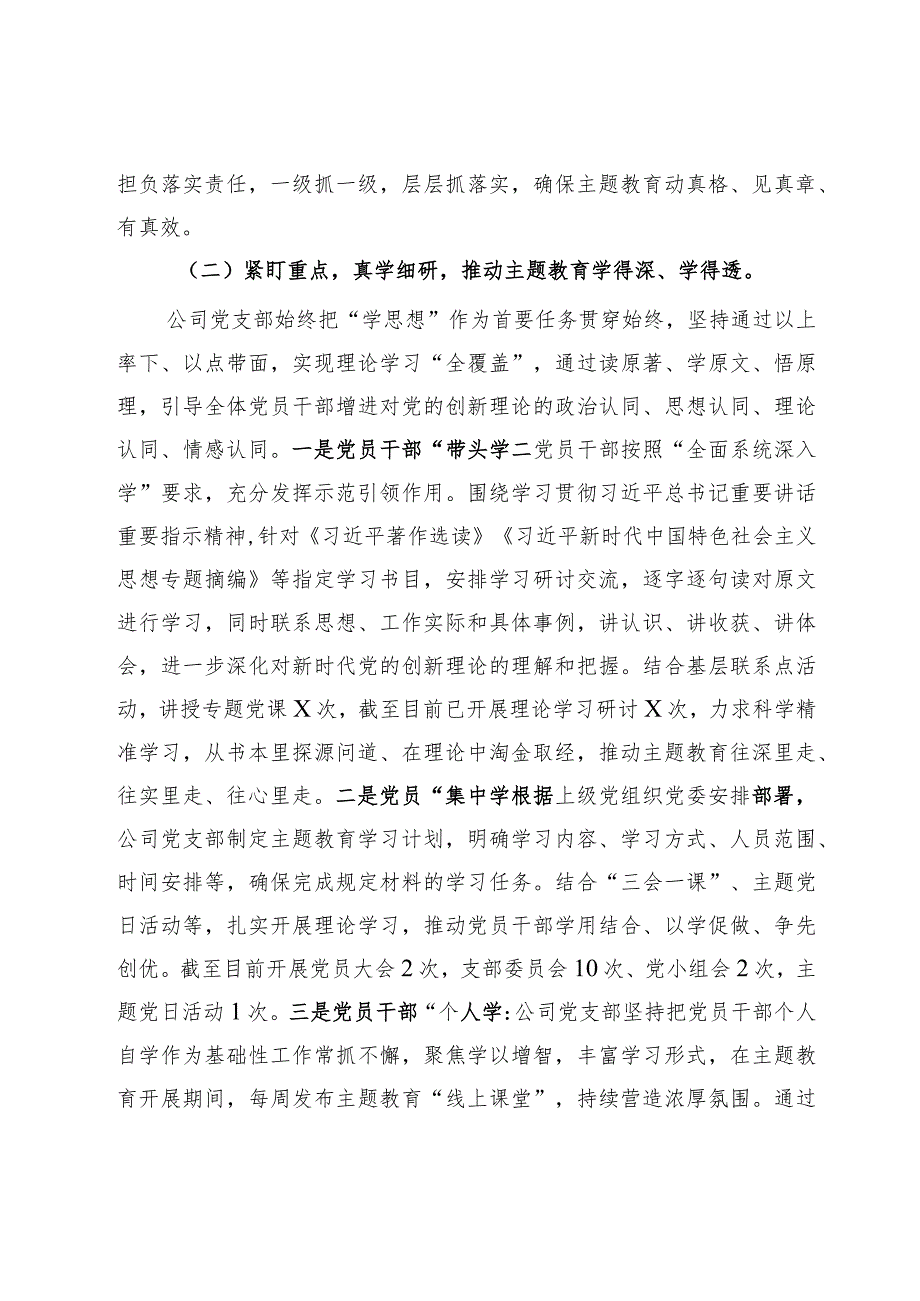 担负落实责任，一级抓一级，层层抓落实，确保主题教育动真格、见真章、
有真效。
（二）紧盯重点，真学细研，推动主题教育学得深、学得透。
公司党支部始终把“学思想”作为首要任务贯穿始终，坚持通过以上
率下、以点带面，实现理论学习“全覆盖”，通过读原著、学原文、悟原
理，引导全体党员干部增进对党的创新理论的政治认同、思想认同、理论
认同、情感认同。一是党员干部“带头学二党员干部按照“全面系统深入
学”要求，充分发挥示范引领作用。围绕学习贯彻习近平总书记重要讲话
重要指示精神,针对《习近平著作选读》《习近平新时代中国特色社会主义
思想专题摘编》等指定学习书目，安排学习研讨交流，逐字逐句读对原文
进行学习，同时联系思想、工作实际和具体事例，讲认识、讲收获、讲体
会，进一步深化对新时代党的创新理论的理解和把握。结合基层联系点活
动，讲授专题党课X次，截至目前已开展理论学习研讨X次，力求科学精
准学习，从书本里探源问道、在理论中淘金取经，推动主题教育往深里走、
往实里走、往心里走。二是党员“集中学根据上级党组织党委安排部署，
公司党支部制定主题教育学习计划，明确学习内容、学习方式、人员范围、
时间安排等，确保完成规定材料的学习任务。结合“三会一课”、主题党
日活动等，扎实开展理论学习，推动党员干部学用结合、以学促做、争先
创优。截至目前开展党员大会2次，支部委员会10次、党小组会2次，主
题党日活动1次。三是党员干部“个人学:公司党支部坚持把党员干部个人
自学作为基础性工作常抓不懈，聚焦学以增智，丰富学习形式，在主题教
育开展期间，每周发布主题教育“线上课堂”，持续营造浓厚氛围。通过